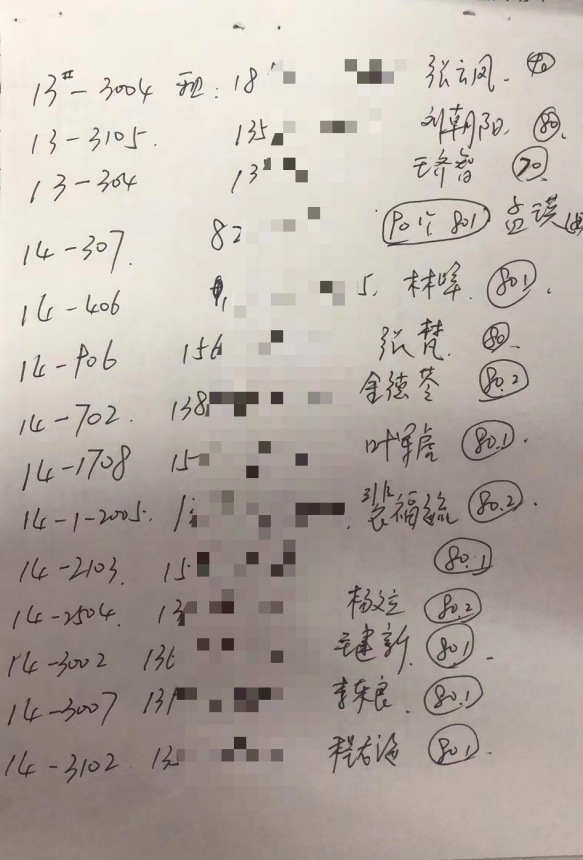 13#-3004 租: 18 张云凤. 90
13-3105. 135 刘朝阳. 80.
13-304 13 王齐智 70
14-307. 82 801 孟
14-406 5. 林峰. 80.1.
14-906 156 张梵. 80
14-702. 138 金德芩 80.2
14-1708 15 叶军虎 80.1.
14-1-2005. 1 裴福 80.2.
14-2103. 15 80.1
14-2504. 13 杨文立 80.2
14-3002 136 王建新. 80.1
14-3007 139 李东良. 80.1
14-3102 13 程 80.1.